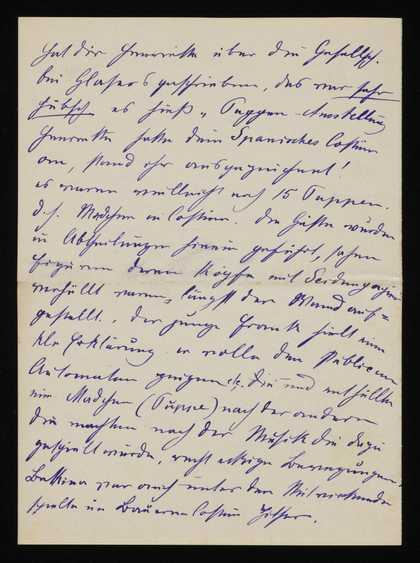 hat dir Henriette über die Gesellsch.
bei Glasers geschrieben, das war sehr
hübsch es hieß „Puppen-Ausstellung
Henriette hatte dein Spanisches Costüm
an, stand ihr ausgezeichnet!
es waren vielleicht noch 15 Puppen.
d. h. Mädchen in Costüm. Die Gäste wurden
in Abtheilungen hinein geführt, sahen
Figuren deren Köpfe mit Seidenpapier
verhüllt waren, längst der Wand auf=
gestellt. der junge Frank hielt eine
kle Erklärung er wolle dem Publicum
Automaten zeigen etc. die und enthüllte
ein Mädchen (Puppe) nach der anderen
die machten nach der Musik die dazu
gespielt wurde, recht eckige Bewegungen.
Bettina war auch unter den Mitwirkenden
spielte im Bauerncostüm Zither.